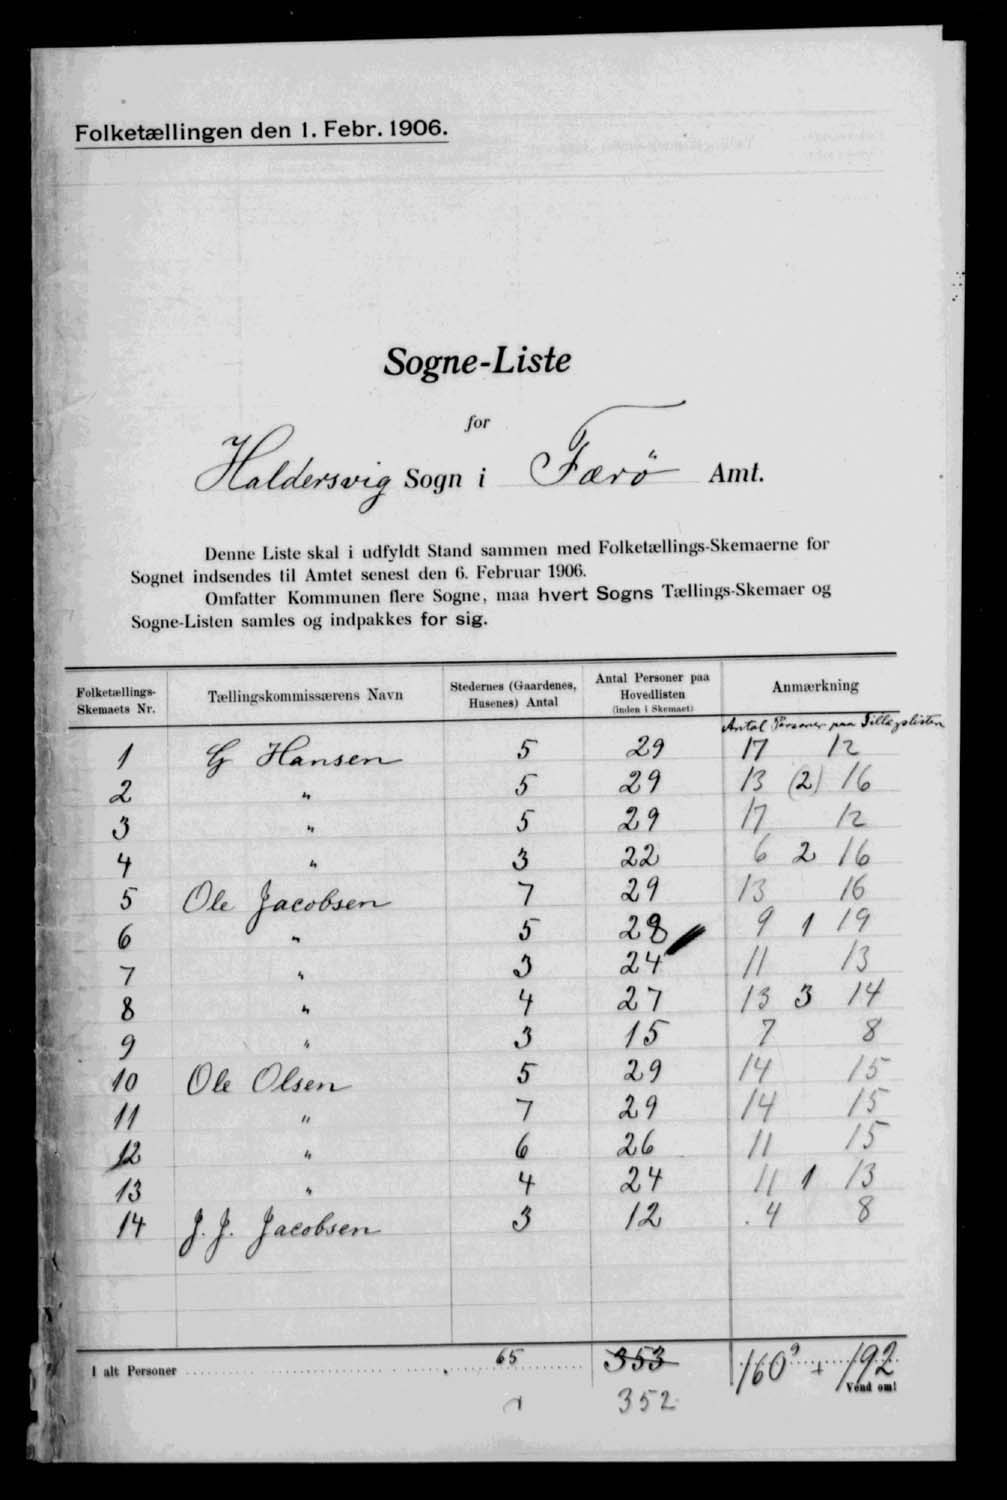 Folketællingen den 1. Febr. 1906.
Sogne-Liste
for
Haldersvig Sogn i Færö Amt.
Denne Liste skal i udfyldt Stand sammen med Folketællings-Skemaerne for
Sognet indsendes til Amtet senest den 6. Februar 1906.
Omfatter Kommunen flere Sogne, maa hvert Sogns Tællings-Skemaer og
Sogne-Listen samles og indpakkes for sig.
Folketællings-Skemaets Nr. Tællingskommissærens Navn Stedernes (Gaardenes, Husenes) Antal Antal Personer paa Hovedlisten (inden i Skemaet) Anmærkning
Antal Personer paa Tillægslisten
1 G Hansen 5 29 17 12
2 " 5 29 13 (2) 16
3 " 5 29 17 12
4 " 3 22 6 2 16
5 Ole Jacobsen 7 29 13 16
6 " 5 28 9 1 19
7 " 3 24 11 13
8 " 4 27 13 3 14
9 " 3 15 7 8
10 Ole Olsen 5 29 14 15
11 " 7 29 14 15
12 " 6 26 11 15
13 " 4 24 11 1 13
14 J. J. Jacobsen 3 12 4 8
I alt Personer 65 353 160 9 + 192
Vend om!
352